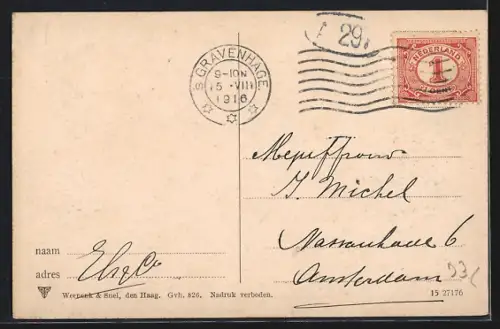 'S GRAVENHAGE
9-10N
15 ·VIII
1916
29
NEDERLAND
1
CENT
Mejuffrouw
J. Michel
Nassaukade 6
Amsterdam
naam
adres
Weenenk & Snel, den Haag. Gvh. 826. Nadruk verboden.
15 27176